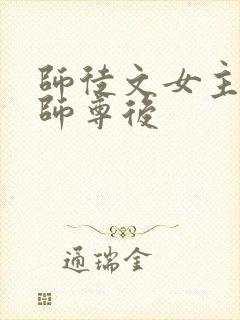 師徒文女主
師尊後
通瑞金